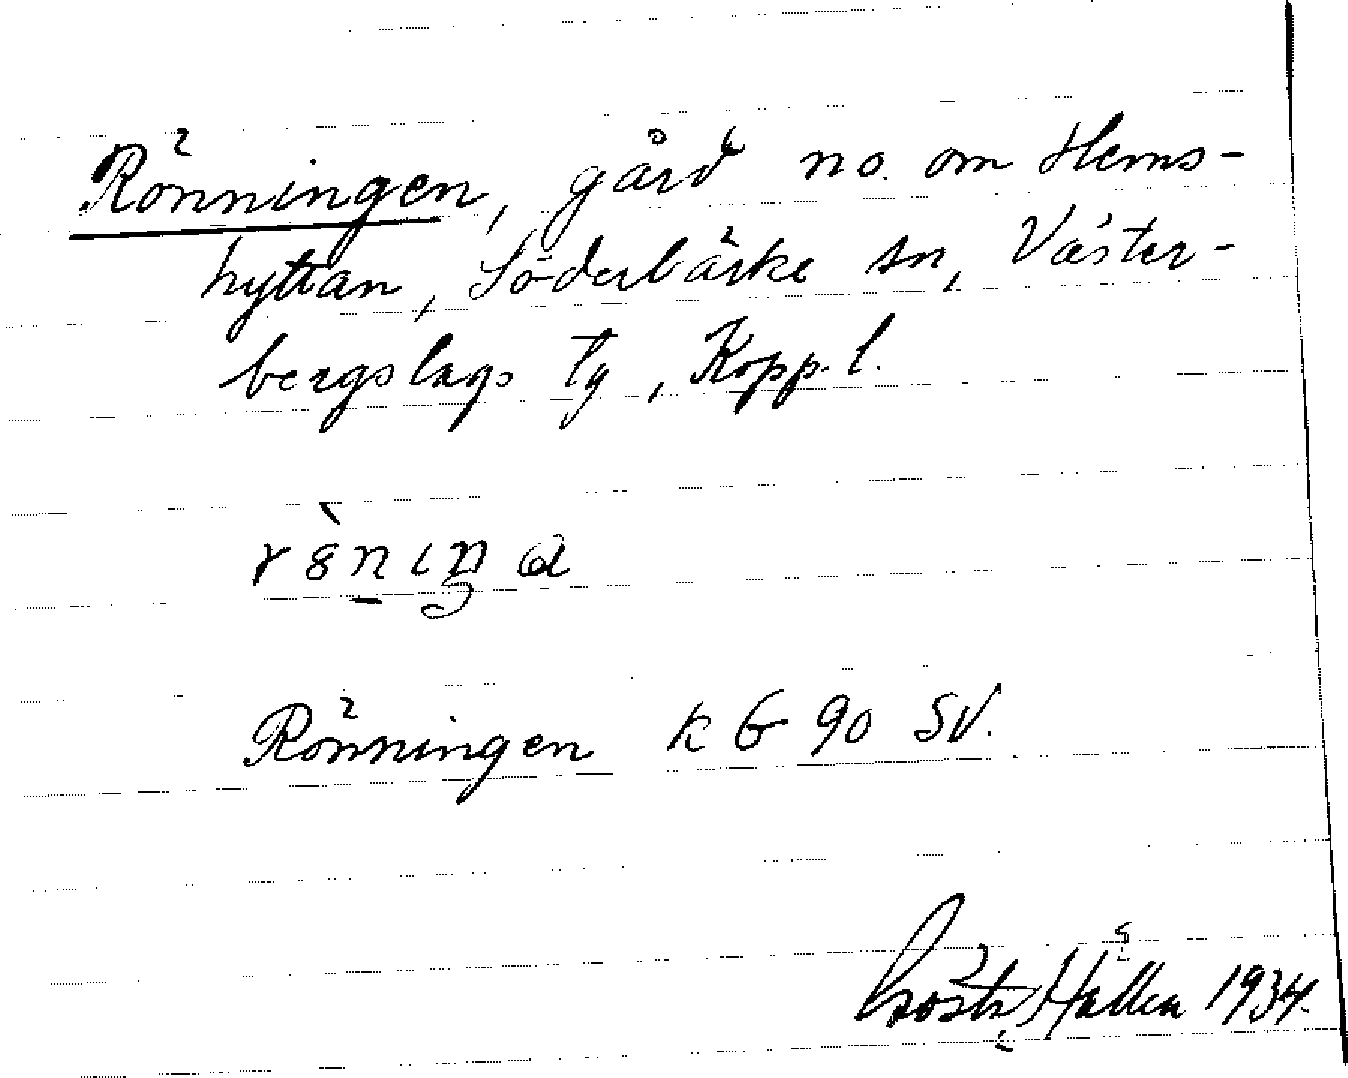 Rönningen, gård no. om Hems-
hyttan, Söderbärke sn, Väster-
bergslags tg, Kopp. l.
Rönningen k G 90 SV.
Gösta Hallén 1934.